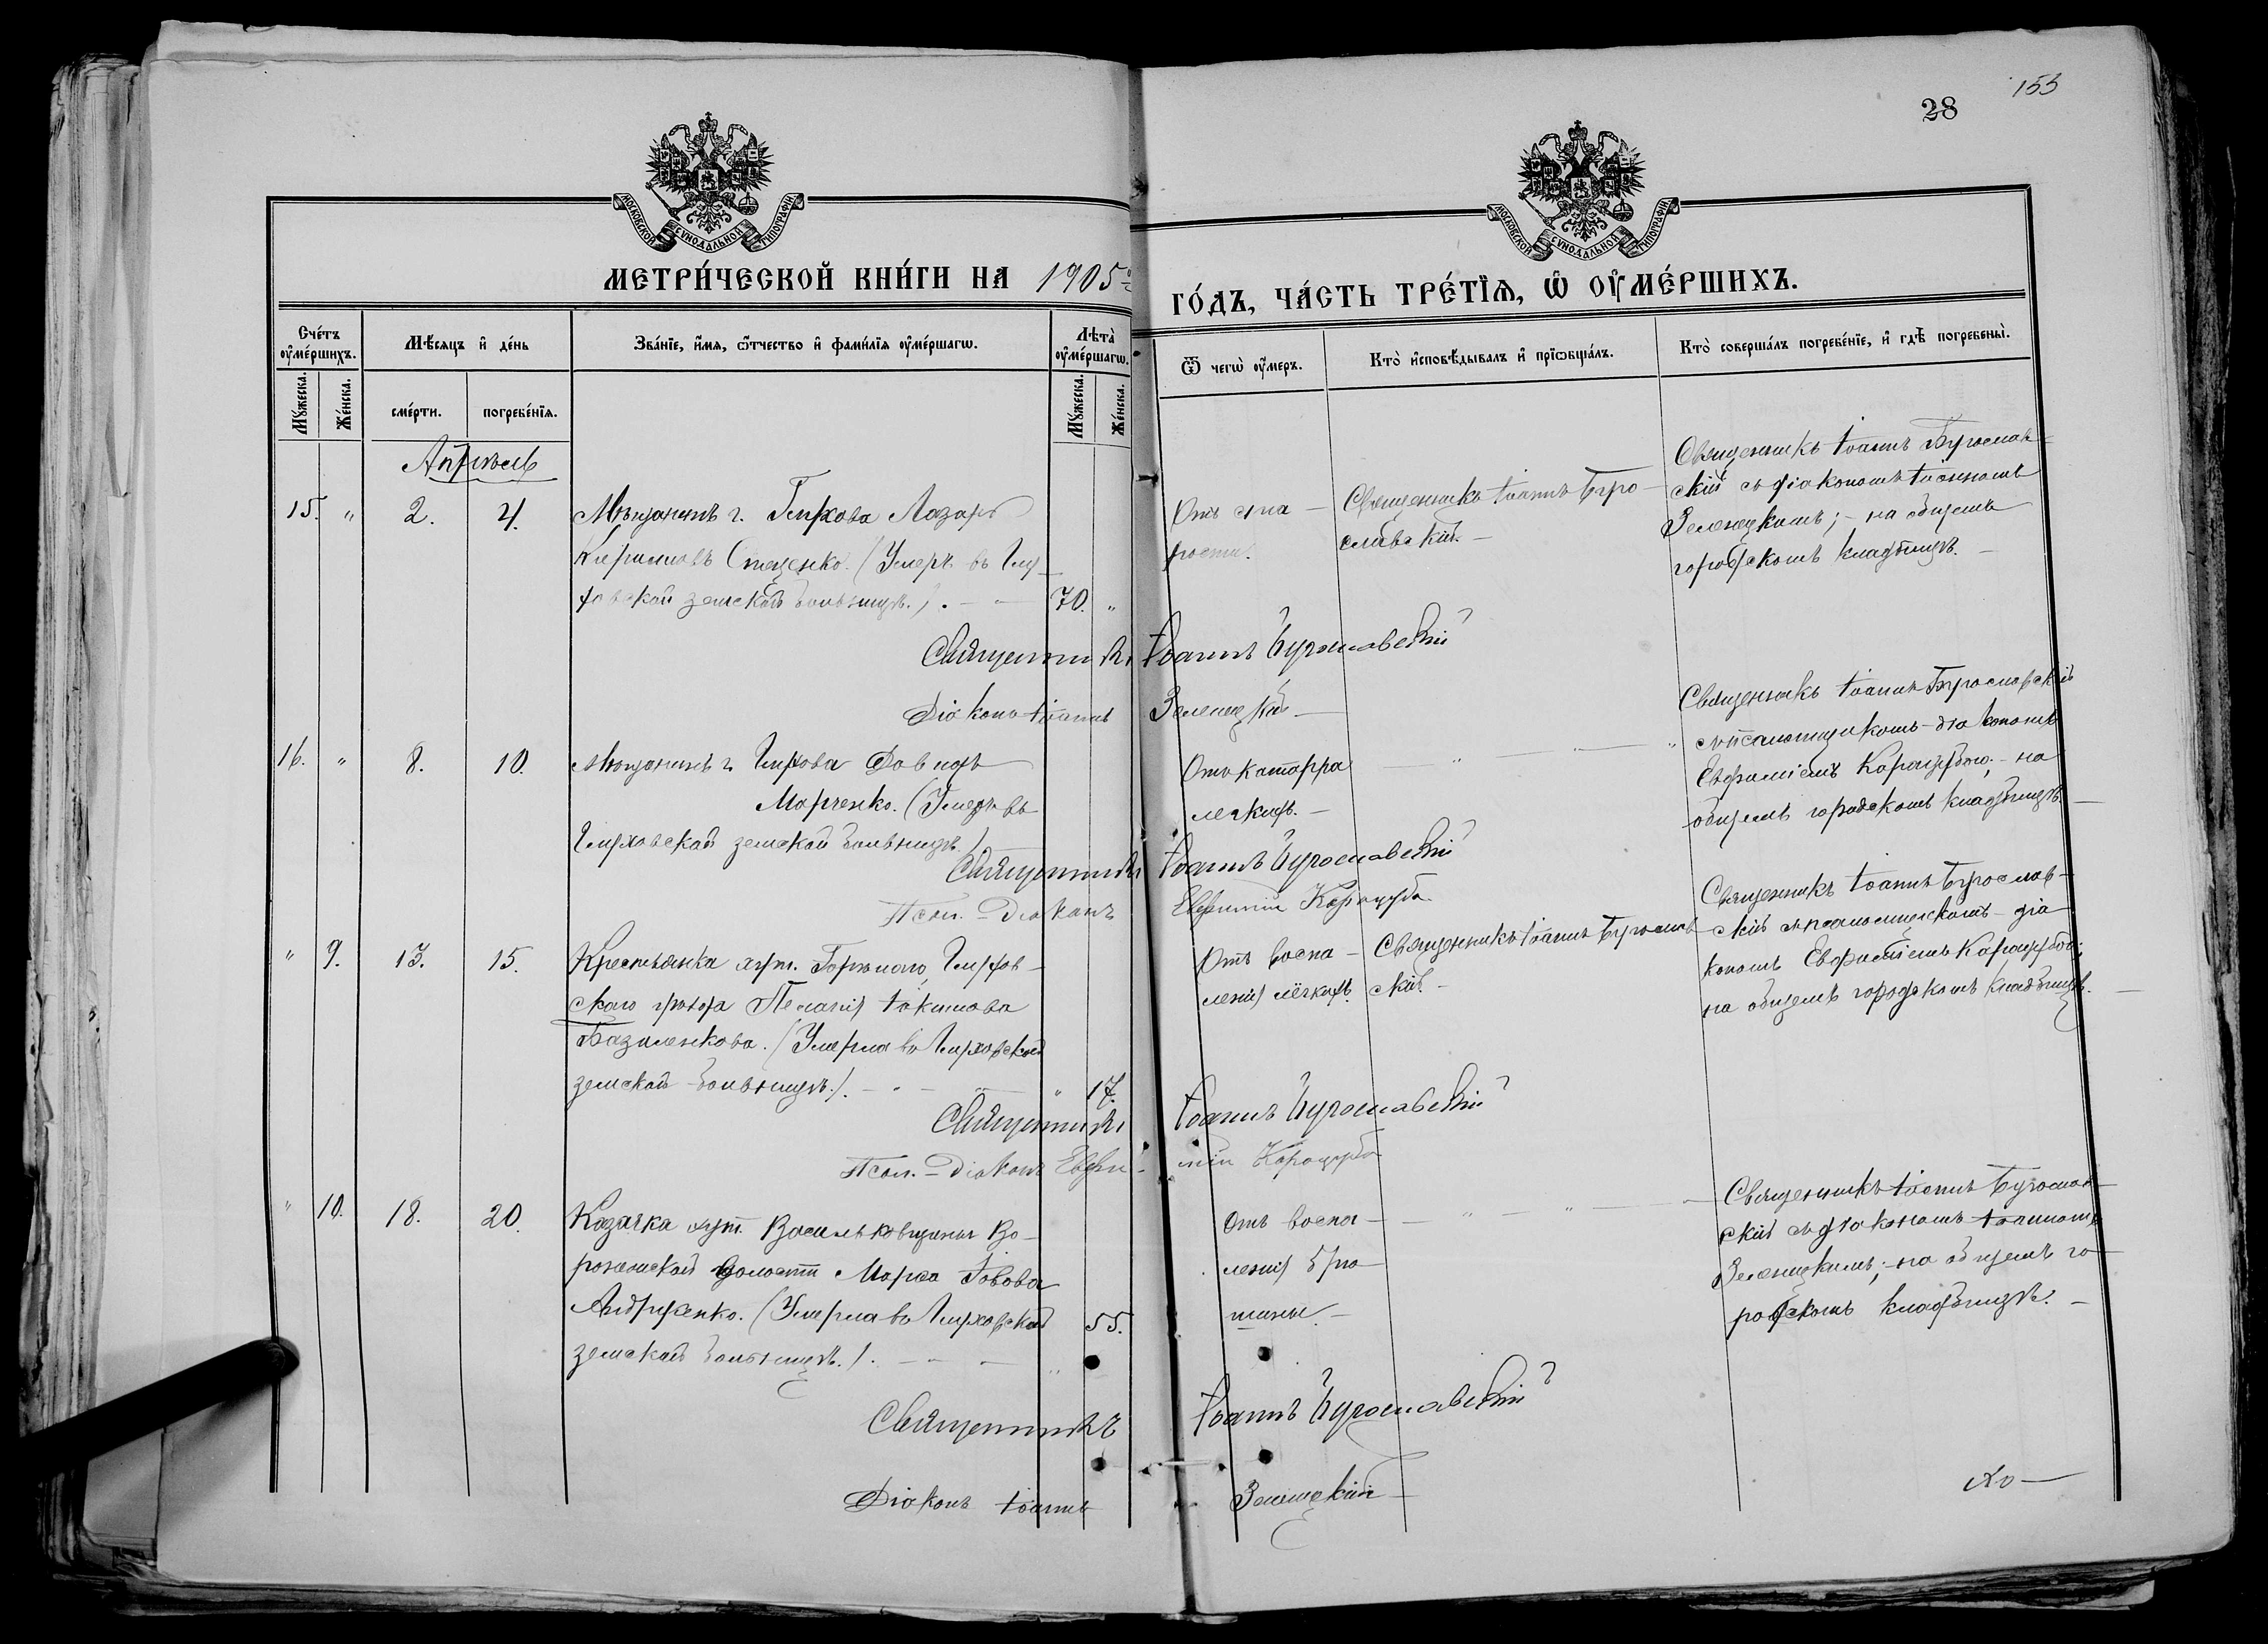 155
28
МОСКОВСКОЙ СѴНОДАЛЬНОЙ ТИПОГРАФІИ
МОСКОВСКОЙ СѴНОДАЛЬНОЙ ТИПОГРАФІИ
МЕТРИ́ЧЕСКОЙ КНИ́ГИ НА 1905
ГО́ДЪ, ЧА́СТЬ ТРЕ́ТІѦ, Ѡ ОУ҆МЕ́РШИХЪ.
Сче́тъ оу҆ме́ршихъ.
Мѣ́сѧцъ и҆ де́нь
Зва́нїе, и҆́мѧ, ѻ҆́тчество и҆ фами́лїѧ оу҆ме́ршагѡ.
Лѣ́та оу҆ме́ршагѡ.
Ѿ чегѡ̀ оу҆́меръ.
Кто̀ и҆сповѣ́дывалъ и҆ прїѡбща́лъ.
Кто̀ соверша́лъ погребе́нїе, и҆ гдѣ̀ погребены̀.
Мꙋ́жеска.
Же́нска.
сме́рти.
погребе́нїѧ.
Мꙋ́жеска.
Же́нска.
Апрѣль
15. " 2. 4.
Мѣщанинъ г. Глухова Лазарь
Стеценко. (Умеръ въ Глу-
ховской земской больницѣ.). 70. "
Отъ ста-
рости.
Священникъ Іоаннъ Буго-
славскій.
Священникъ Іоаннъ Бугослав-
скій съ діакономъ Іоанномъ
Зеленецкимъ; - на общемъ
городскомъ кладбищѣ.
Священникъ Іоаннъ Бугославскій
Діаконъ Іоаннъ Зеленецкій
16. " 8. 10.
Мѣщанинъ г. Глухова Давидъ
Марченко. (Умеръ въ
Глуховской земской больницѣ)
Отъ катарра
легкихъ.
Священникъ Іоаннъ Бугославскій
съ псаломщикомъ-діакономъ
Евфиміемъ Карацубою; - на
общемъ городскомъ кладбищѣ.
Священникъ Іоаннъ Бугославскій
Псал.-Діаконъ Евфимій Карацуба
" 9. 13. 15.
Крестьянка хут. Глухов-
скаго уѣзда Пелагія Іакимова
Базиленкова. (Умерла въ Глуховской
земской больницѣ.). " 17.
Отъ воспа-
ленія лёгкихъ.
Священникъ Іоаннъ Бугослав-
скій.
Священникъ Іоаннъ Бугослав-
скій съ псаломщикомъ-діа-
кономъ Евфиміемъ Карацубою;
на общемъ городскомъ кладбищѣ.
Священникъ Іоаннъ Бугославскій
Псал.-Діаконъ Евфимій Карацуба
" 10. 18. 20.
Козачка хут. Васильковщины Во-
ронежской волости Марѳа Іовова
Андрущенко. (Умерла въ Глуховской 55.
земской больницѣ.).
Отъ воспа-
ленія брю-
шины.
Священникъ Іоаннъ Бугослав-
скій съ діакономъ Іоанномъ
Зеленецкимъ; - на общемъ го-
родскомъ кладбищѣ.
Священникъ Іоаннъ Бугославскій
Діаконъ Іоаннъ Зеленецкій